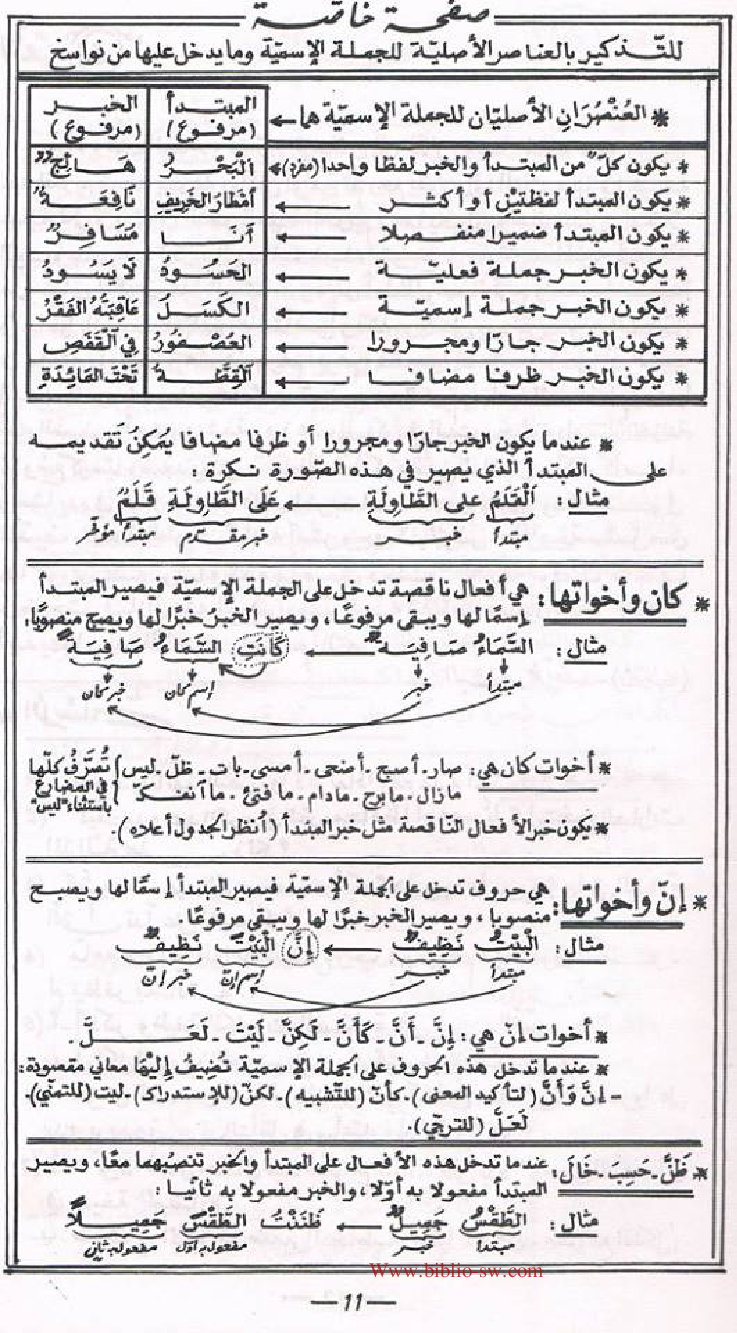 صفحة خاصّة
للتّذكير بالعناصر الأصليّة للجملة الإسميّة وما يدخل عليها من نواسخ
* العُنْصُرَانِ الأصليّان للجملة الإسميّة هما ← المبتدأ (مرفوع) الخبر (مرفوع)
* يكون كلّ من المبتدأ والخبر لفظا واحدا (مفرد) ← الْبَحْرُ هَائِجٌ
* يكون المبتدأ لفظتيْن أو أكثر ← أمْطَارُ الخَرِيفِ نَافِعَةٌ
* يكون المبتدأ ضميرا منفصلا ← أنَا مُسَافِرٌ
* يكون الخبر جملة فعليّة ← الحَسُودُ لاَ يَسُودُ
* يكون الخبر جملة إسميّة ← الكَسَلُ عَاقِبَتُهُ الفَقْرُ
* يكون الخبر جارّا ومجرورا ← العُصْفُورُ فِي الْقَفَصِ
* يكون الخبر ظرفا مضافا ← الْقِطَّةُ تَحْتَ المَائِدَةِ
* عندما يكون الخبر جارّا ومجرورا أو ظرفا مضافا يُمكنُ تَقْديمه
على المبتدأ الذي يَصير في هذه الصّورة نكرة :
مثال : الْقَلَمُ على الطَّاوِلَةِ ← عَلَى الطَّاوِلَةِ قَلَمٌ
مبتدأ خبر خبر مقدّم مبتدأ مؤخّر
* كان وأخواتها : هي أفعال ناقصة تدخل على الجملة الإسميّة فيصير المبتدأ
إسمًا لها ويبقى مرفوعًا، ويصير الخبر خبرًا لها ويصبح منصوبًا.
مثال : السَّمَاءُ صَافِيَةٌ ← كَانَتِ السَّمَاءُ صَافِيَةً
مبتدأ خبر إسم كان خبر كان
* أخوات كان هي : صار - أصبح - أضحى - أمسى - بات - ظلّ - ليس
مازال - مابرح - مادام - مافتئ - ما آنفكّ
تُصَرَّفُ كلّها في المضارع بآستثناء "ليس"
* يكون خبر الأفعال النّاقصة مثل خبر المبتدأ (أنظر الجدول أعلاه).
* إنّ وأخواتها : هي حروف تدخل على الجملة الإسميّة فيصير المبتدأ إسمًا لها ويصبح
منصوبا، ويصير الخبر خبرًا لها ويبقى مرفوعًا :
مثال : الْبَيْتُ نَظِيفٌ ← إنَّ الْبَيْتَ نَظِيفٌ
مبتدأ خبر إسم إنّ خبر إنّ
* أخوات إنّ هي : إنَّ - أنَّ - كَأنَّ - لَكِنَّ - لَيْتَ - لَعَلَّ -
* عندما تدخل هذه الحروف على الجملة الإسميّة تُضِيفُ إليْهَا معاني مقصودة :
- إنَّ وَأنَّ (لتأكيد المعنى) - كأنّ (للتّشبيه) - لكنّ (للإستدراك) - ليت (للتمنّي).
لَعَلَّ (للترجّي).
* ظَنَّ - حَسِبَ - خَالَ : عندما تدخل هذه الأفعال على المبتدأ والخبر تنصبهما معًا، ويصير
المبتدأ مفعولا به أوّلا، والخبر مفعولا به ثانيًا :
مثال : الطَّقْسُ جَمِيلٌ ← ظَنَنْتُ الطَّقْسَ جَمِيلاً
مبتدأ خبر مفعول به أوّل مفعول به ثاني
Www.biblio-sw.com
-11-